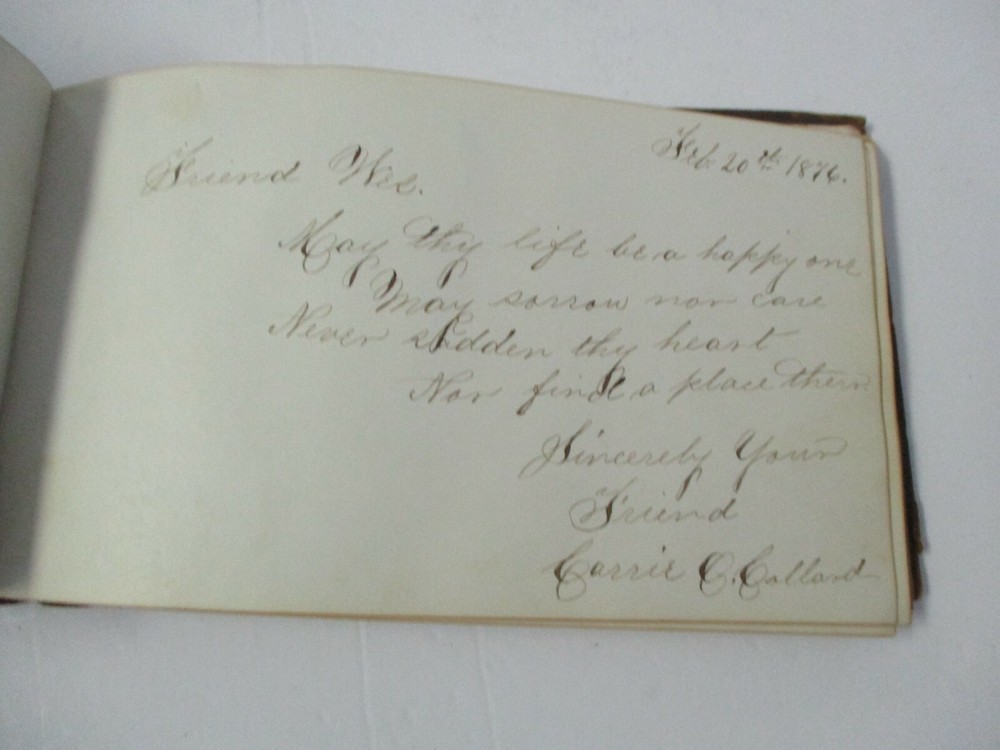 Feb. 20th 1876.
Friend Wes.
May thy life be a happy one
May sorrow nor care
Never sadden thy heart
Nor find a place there
Sincerely Your
Friend
Carrie C. Collard